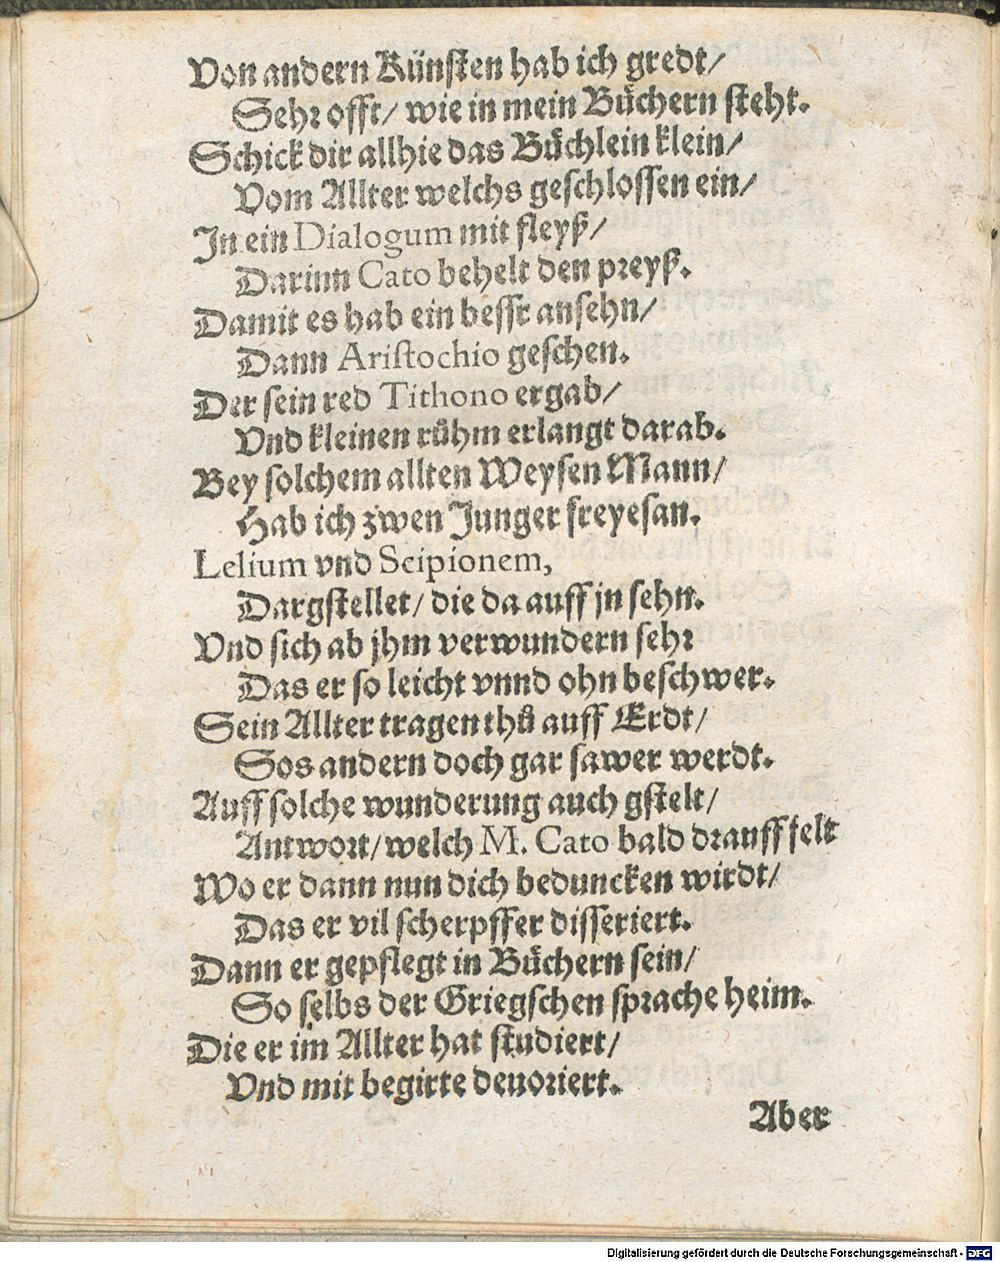 Von andern Künsten hab ich gredt/
Sehr offt/ wie in mein Bůchern steht.
Schick dir allhie das Bůchlein klein/
Vom Allter welchs geschlossen ein/
In ein Dialogum mit fleyß/
Darinn Cato behelt den preyß.
Damit es hab ein bessr ansehn/
Dann Aristochio geschen.
Der sein red Tithono ergab/
Vnd kleinen růhm erlangt darab.
Bey solchem allten Weysen Mann/
Hab ich zwen Junger freyesan.
Lelium vnd Scipionem,
Dargstellet/ die da auff jn sehn.
Vnd sich ab jhm verwundern sehr
Das er so leicht vnnd ohn beschwer.
Sein Allter tragen thů auff Erdt/
Sos andern doch gar sawer werdt.
Auff solche wunderung auch gstelt/
Antwort/ welch M. Cato bald drauff felt
Wo er dann nun dich beduncken wirdt/
Das er vil scherpffer disseriert.
Dann er gepflegt in Bůchern sein/
So selbs der Griegschen sprache heim.
Die er im Allter hat studiert/
Vnd mit begirte deuoriert.
Aber
Digitalisierung gefördert durch die Deutsche Forschungsgemeinschaft - DFG